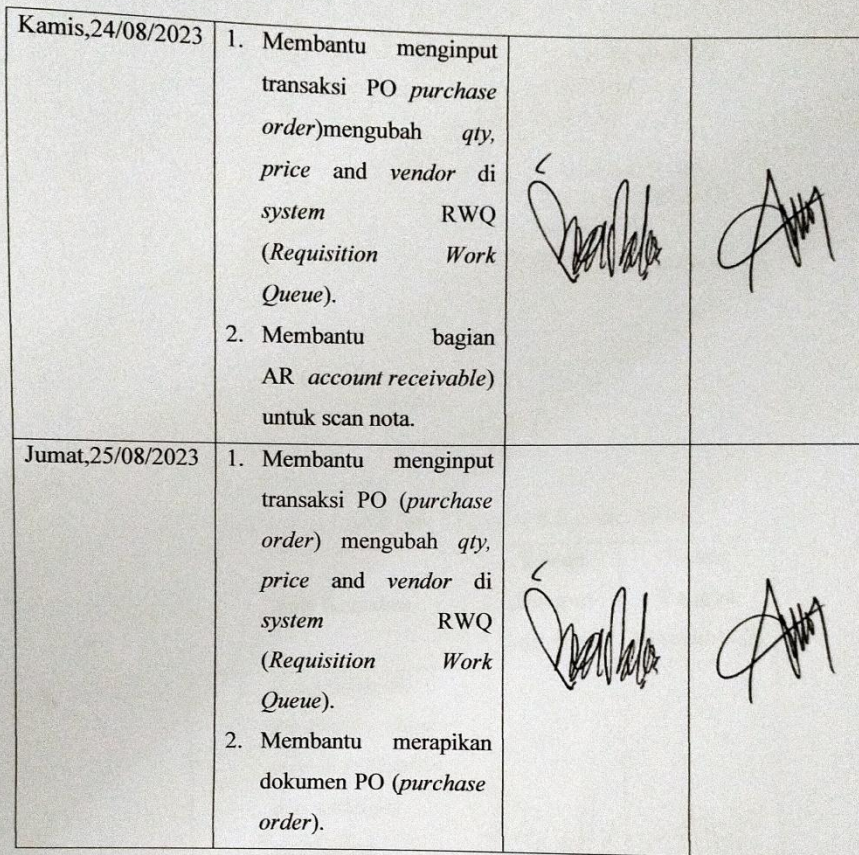 Kamis,24/08/2023
1. Membantu menginput
transaksi PO purchase
order)mengubah qty,
price and vendor di
system RWQ
(Requisition Work
Queue).
2. Membantu bagian
AR account receivable)
untuk scan nota.
Jumat,25/08/2023
1. Membantu menginput
transaksi PO (purchase
order) mengubah qty,
price and vendor di
system RWQ
(Requisition Work
Queue).
2. Membantu merapikan
dokumen PO (purchase
order).